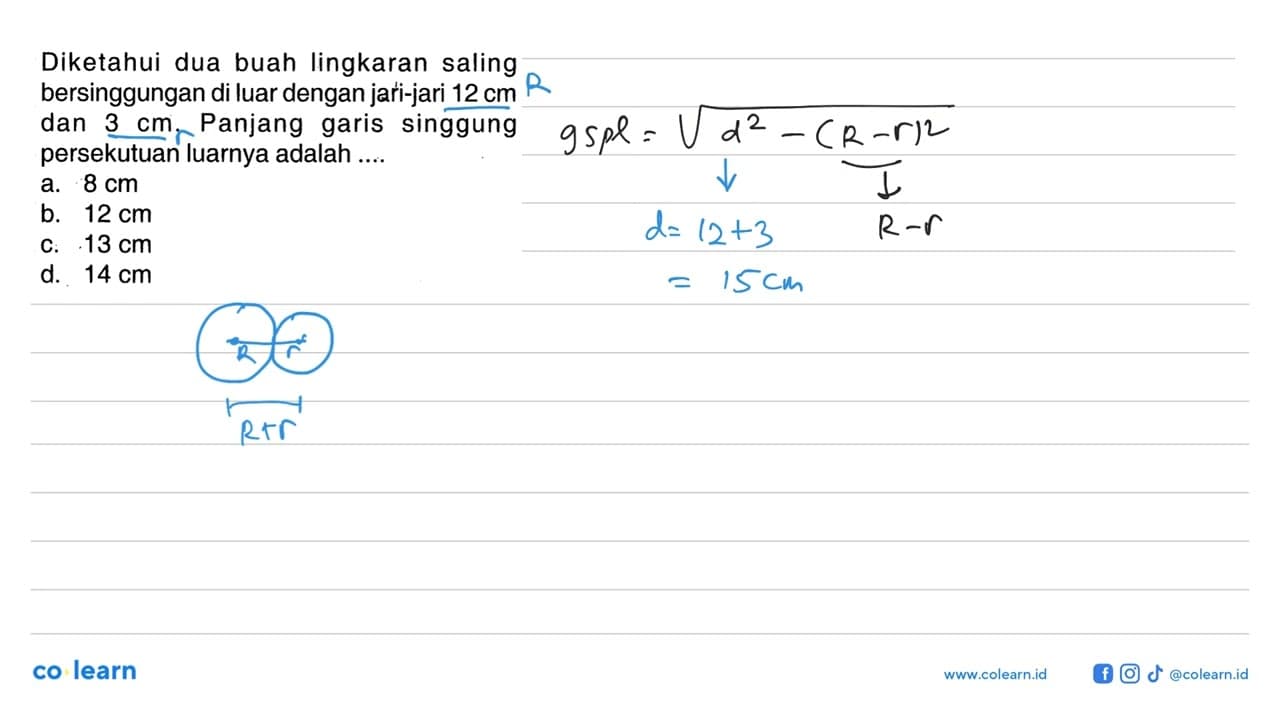 Diketahui dua buah lingkaran saling
bersinggungan di luar dengan jari-jari 12 cm R
dan 3 cm. Panjang garis singgung
r
persekutuan luarnya adalah ....
a. 8 cm
b. 12 cm
c. 13 cm
d. 14 cm
gspl = √d² - (R-r)²
↓ ↓
d = 12+3 R-r
= 15 cm
R r
R+r
co learn
www.colearn.id @colearn.id